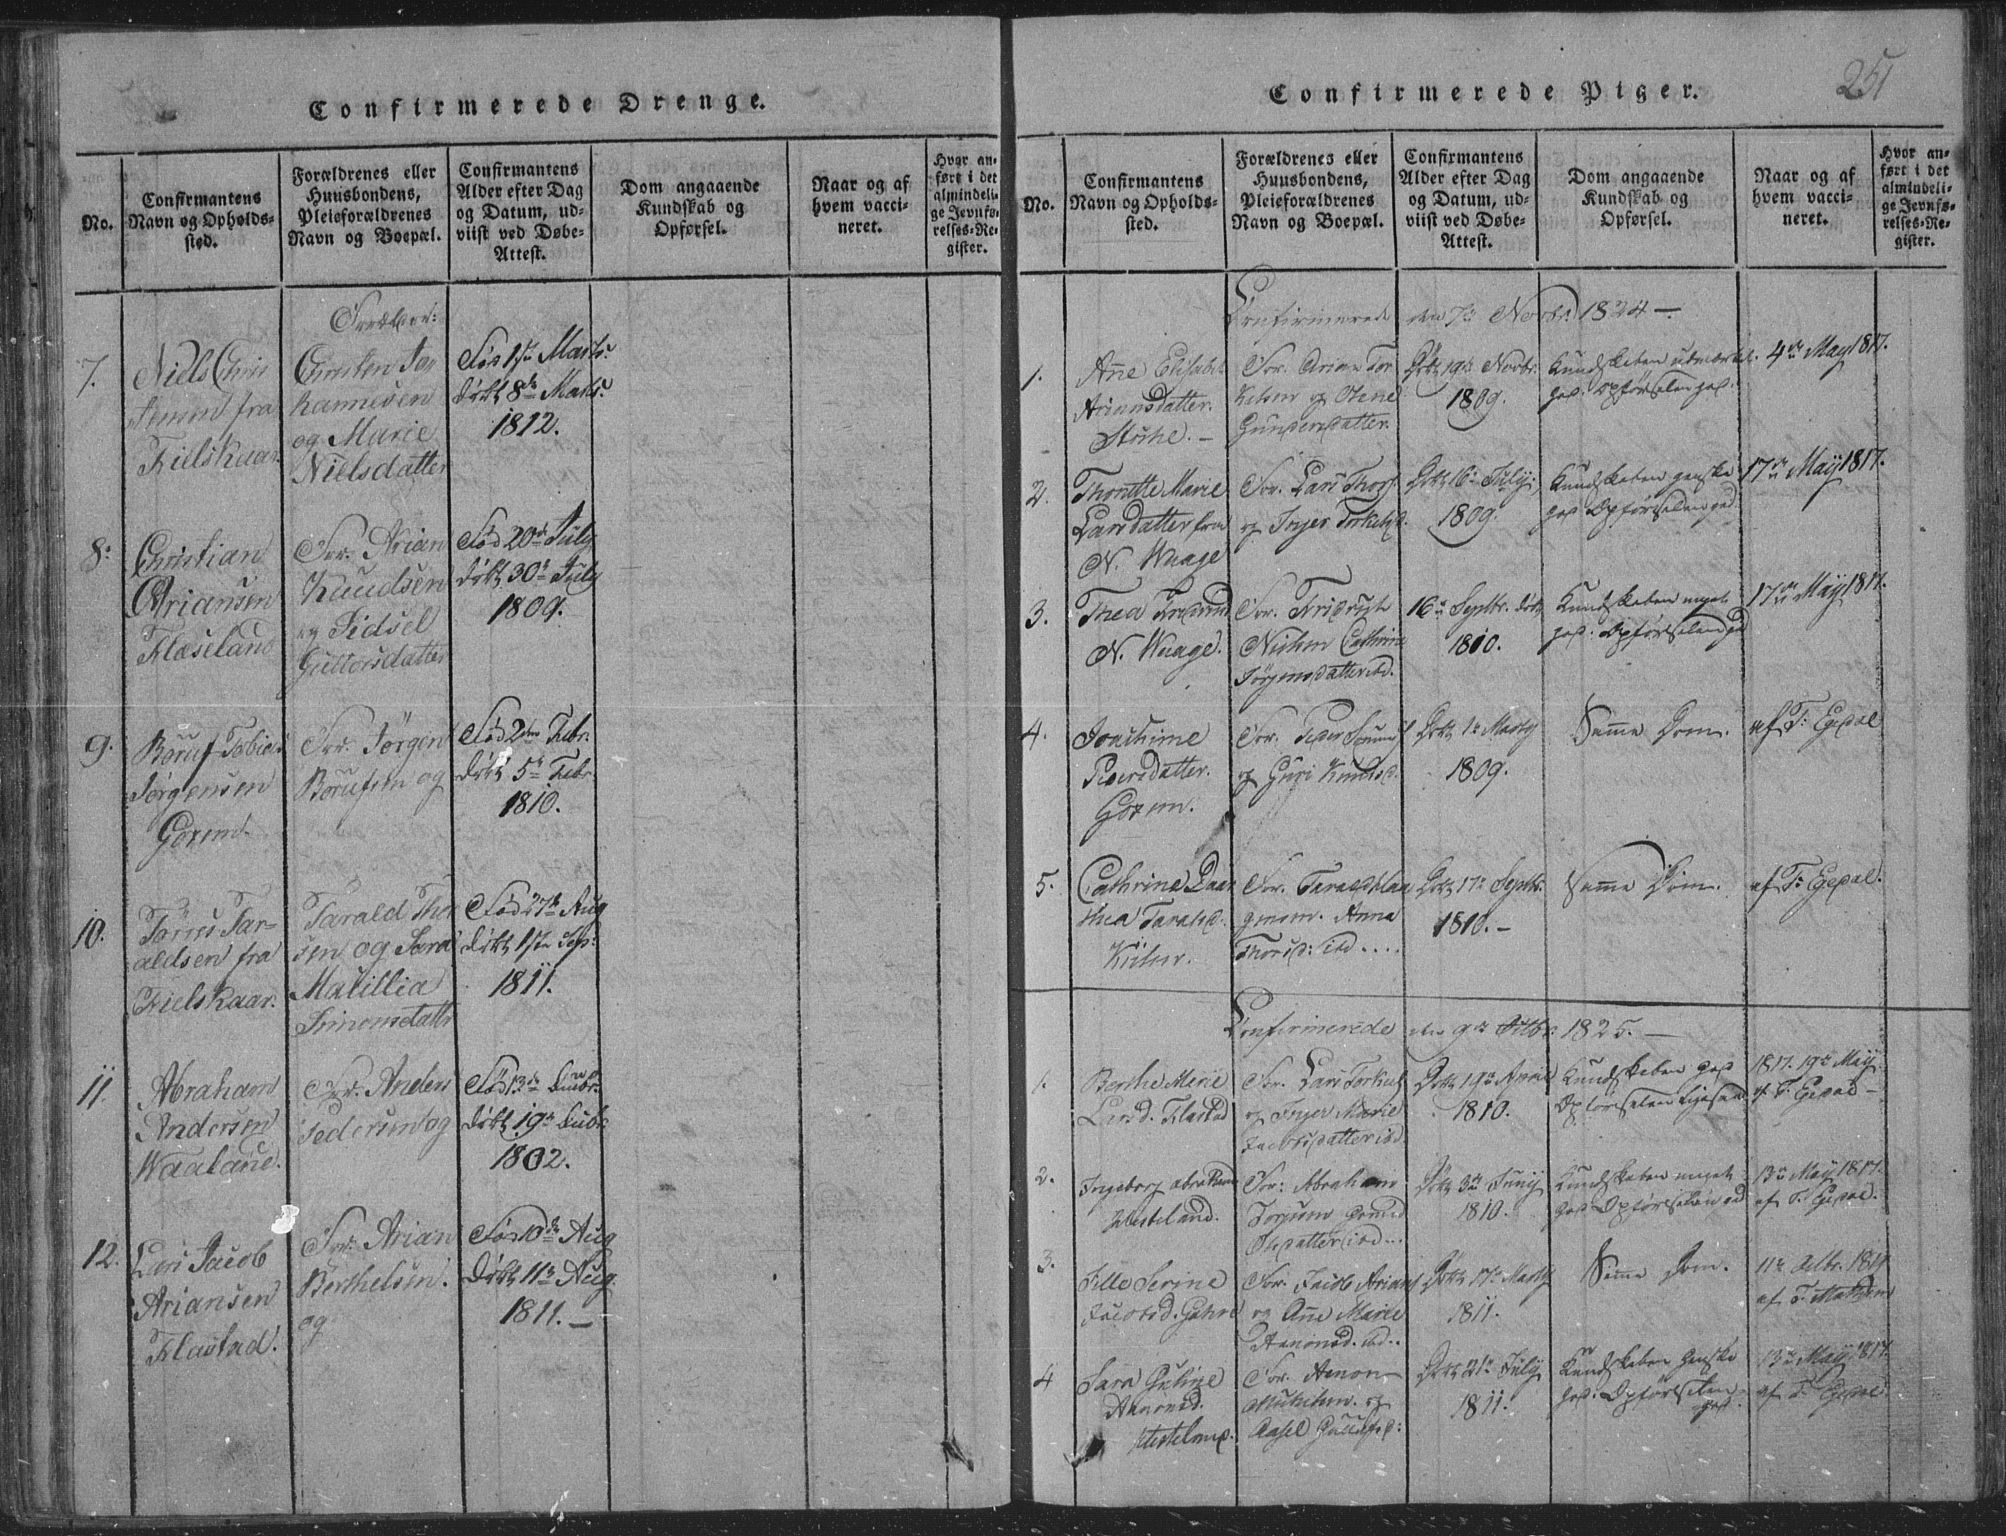 Confirmerede Drenge.
No.
Confirmantens
Navn og Opholds-
sted.
Forældrenes eller
Huusbondens,
Pleieforældrenes
Navn og Boepæl.
Confirmantens
Alder efter Dag
og Datum, ud-
viist ved Døbe-
Attest.
Dom angaaende
Kundskab og
Opførsel.
Naar og af
hvem vacci-
neret.
Hvor an-
ført i det
almindeli-
ge Jevnfø-
relses-Re-
gister.
7.
Niels Chris
tensen fra
Fielskaar.
Forældre:
Christen Jo
hannesen
og Marie
Nielsdatter
Fød 1ste Marts:
døbt 8de Marts.
1812.
8:
Christian
Ariansen
Flaseland
For. Arian
Knudsen
og Sidsel
Guttorsdatter
Fød 20de July
døbt 30te July
1809.
9.
Børuf Tobias
Jørgensen
Goxem.
For. Jørgen
Børufsen og
Fød 2den Febr.
døbt 5te Febr.
1810.
10.
Tønnes Tar-
aldsen fra
Fielskaar.
Tarald Thor
sen og Sara
Matillia
Simonsdatter
Fød 27de Aug
døbt 1ste Sep:
1811.
11.
Abraham
Andersen
Waalane.
For. Anders
Pedersen og
Fød 13de
døbt 19de
1802.
12.
Lars Jacob
Ariansen
Flastad.
For. Arian
Berthelsen.
og
Fød 10de Aug
Døbt 11te Aug.
1811. —
Confirmerede Piger.
251
No.
Confirmantens
Navn og Opholds-
sted.
Forældrenes eller
Huusbondens,
Pleieforældrenes
Navn og Boepæl.
Confirmantens
Alder efter Dag
og Datum, ud-
viist ved Døbe-
Attest.
Dom angaaende
Kundskab og
Opførsel.
Naar og af
hvem vacci-
neret.
Hvor an-
ført i det
almindeli-
ge Jevnfø-
relses-Re-
gister.
Confirmerede den 7de Novbr. 1824 —
1.
Anne Elisabet
Ariansdatter.
Stoche. —
For. Arian Tor
kelsen og Olene
Gundersdatter.
Døbt 19de Novbr.
1809.
Kundskaben udmærket
god. Opførselen god.
4de May 1817.
2.
Thonette Marie
Larsdatter fra
N. Waage
For. Lars Thors
og Inger Torkelsd.
Døbt 16de July.
1809.
Kundskaben ganske
god Opførselen god.
17de May 1817.
3.
Thea
N. Waage.
For. Fridrich
Nielsen Cathrine
Jørgensdatter ibd.
16de Septbr. døbt
1810.
Kundskaben meget
god. Opførselen god
17de May 1817.
4.
Joachime
Pedersdatter.
Goxem.
For. Peder
og Guri Knudsd.
Døbt 1te Marty
1809.
Samme Dom.
af T: Egedal
5.
Cathrine Daar
thea Taralsd.
For. Tarald
Anna
Thorsd: ibd....
Døbt 17de Septbr.
1810. —
Samme Dom.
af T: Egedal.
Confirmerede den 9de Octbr. 1825. —
1.
Berthe Marie
Larsd. Flastad
For. Lars Torkels
og Inger Marie
Jacobsdatter ibd.
Døbt 19de April
1810.
Kundskaben god
Opførselen ligesaa
1817. 19de May
af T: Egedal —
2.
Ingeborg Abraham
Westeland.
For: Abraham
datter ibd...
Døbt 3de Juny
1810.
Kundskaben meget
god Opførselen god
13de May 1817.
af T: Egedal.
3.
Sille Serine
Jacobsd.
For. Jacob Arians
og Anne Marie
Aanonsd. ibd..
Døbt 17de Marty
1811.
Samme Dom.
11te Octbr. 1819
af T.
4
Sara Gurine
Aanonsd.
For. Aanon
og
Aasel
Døbt 21de July
1811.
Kundskaben Ganske
god: Opførselen
god.
13de May 1817.
af T: Egedal.